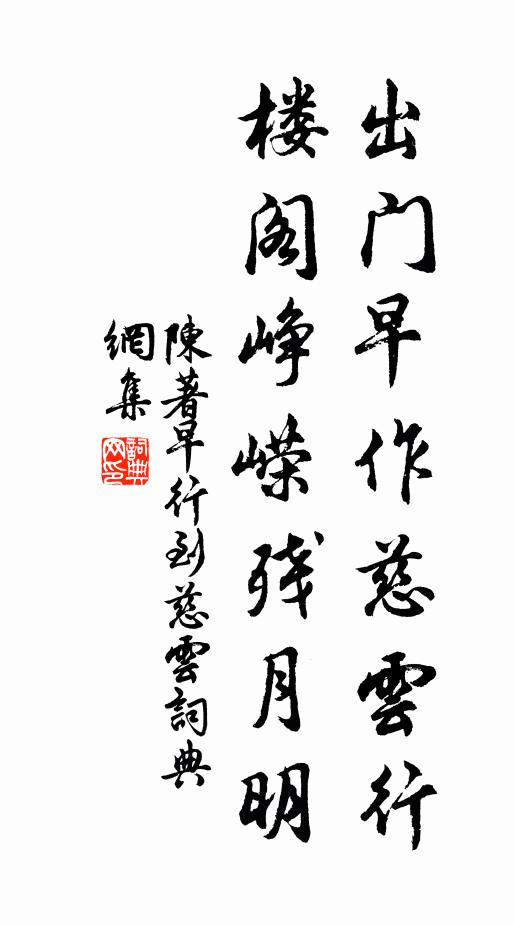 出门早作慈雲行
楼阁峥嵘残月明
陳著早行到慈雲詞典
網集
詞典網印